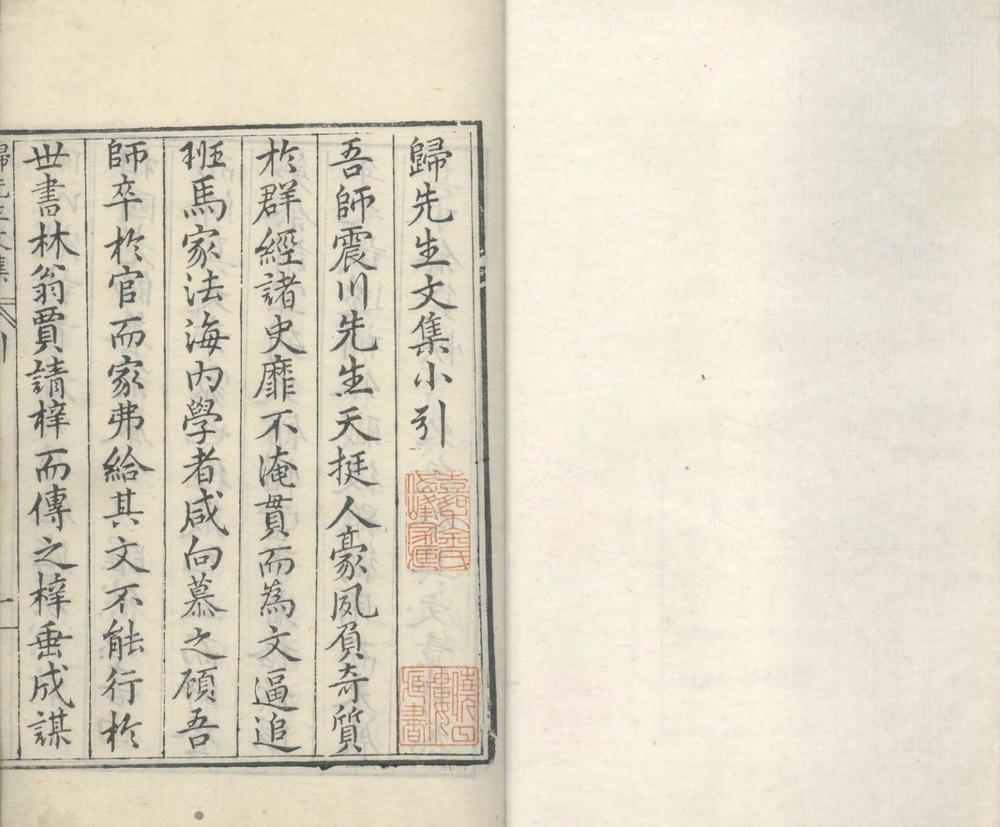 歸先生文集小引
吾師震川先生天挺人豪夙負奇質
於群經諸史靡不淹貫而為文逼追
班馬家法海内學者咸向慕之顧吾
師卒於官而家弗給其文不能行於
世書林翁賈請梓而傳之梓垂成謀